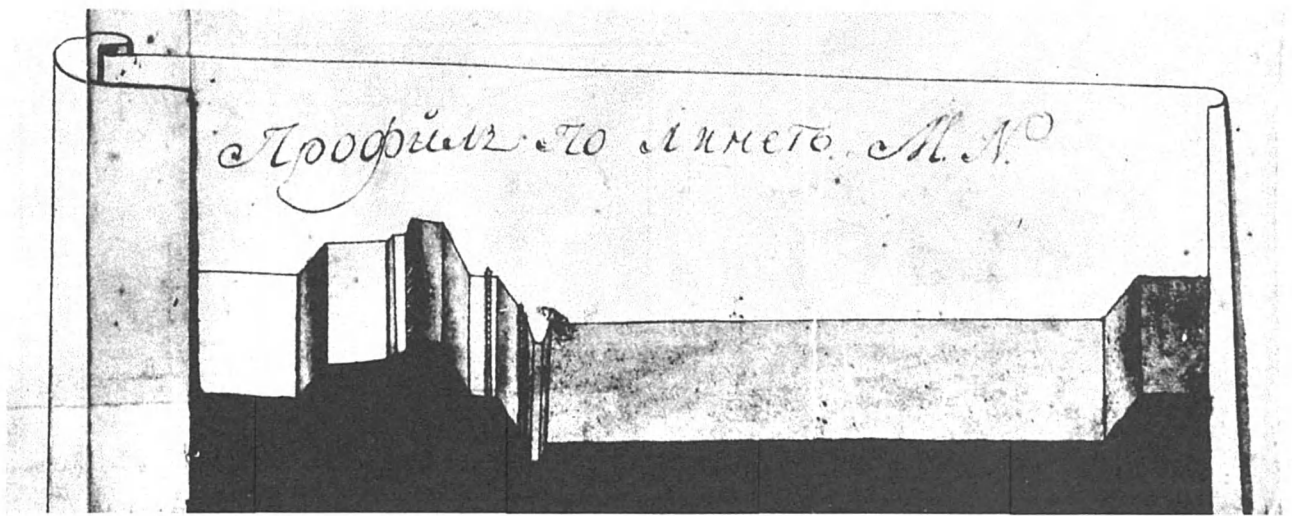 Профиль по линеѣ M.N.